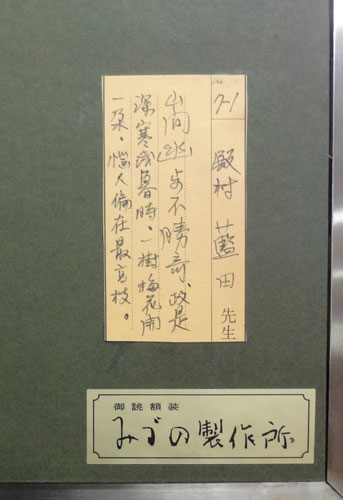 No. 7-1
殿村 藍田 先生
山間幽歩不勝奇、政是
深寒浅暮時、一樹梅花開
一朶、悩人偏在最高枝。
御誂額装
みづの製作所